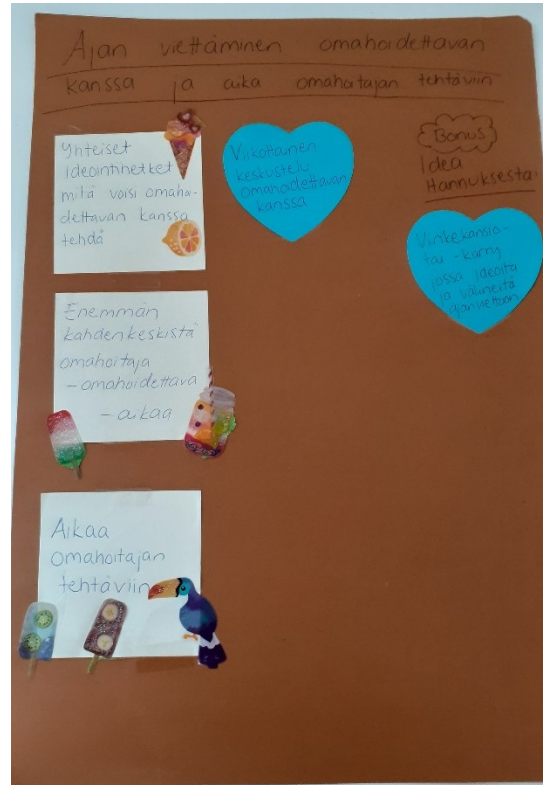 Ajan viettäminen omahoidettavan
kanssa ja aika omahoitajan tehtäviin
Yhteiset
ideointihetket
mitä voisi omahoi-
dettavan kanssa
tehdä
Viikottainen
keskustelu
omahoidettavan
kanssa
Bonus
Idea
Hannuksesta
Vinkekansio-
tai -kärry
jossa ideoita
ja välineitä
ajanviettoon
Enemmän
kahdenkeskistä
omahoitaja
- omahoidettava
- aikaa
Aikaa
omahoitajan
tehtäviin